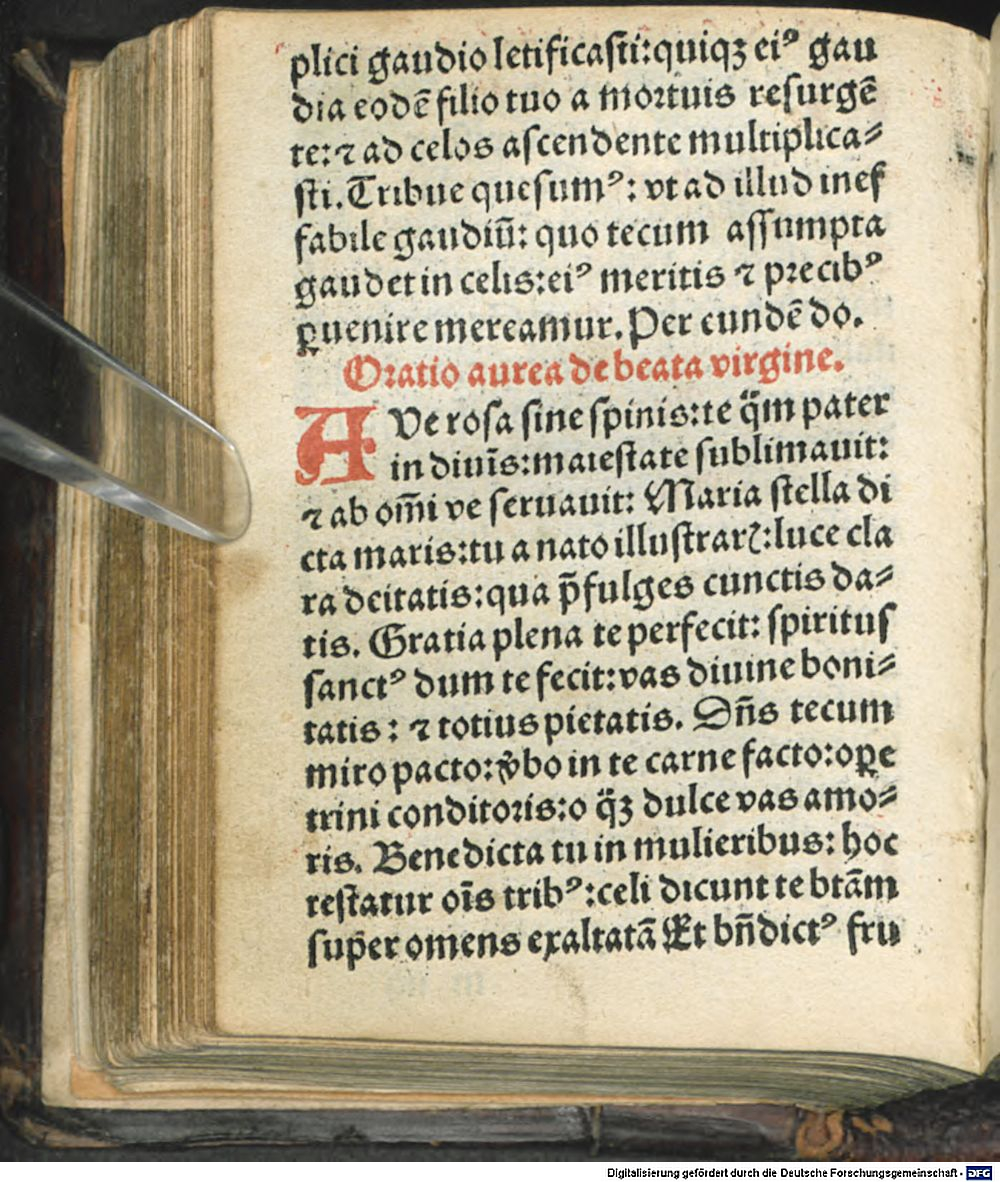 plici gaudio letificasti:quiqꝫ eiꝰ gau
dia eodē filio tuo a mortuis resurgē
te:⁊ ad celos ascendente multiplica⸗
sti. Tribue quesumꝰ: vt ad illud inef
fabile gaudiū: quo tecum assumpta
gaudet in celis:eiꝰ meritis ⁊ precibꝰ
ꝑuenire mereamur. Per eundē do.
Oratio aurea de beata virgine.
AVe rosa sine spinis:te q̄m pater
in diuīs:maiestate sublimauit:
⁊ ab om̄i ve seruauit: Maria stella di
cta maris:tu a nato illustrarꝭ:luce cla
ra deitatis:qua p̄fulges cunctis da⸗
tis. Gratia plena te perfecit: spiritus
sanctꝰ dum te fecit:vas diuine boni⸗
tatis: ⁊ totius pietatis. Dn̄s tecum
miro pacto:v̄bo in te carne facto:oꝑe
trini conditoris:o q̄ꝫ dulce vas amo⸗
ris. Benedicta tu in mulieribus: hoc
testatur oīs tribꝰ:celi dicunt te btām
super omens exaltatā Et bn̄dictꝰ fru
Digitalisierung gefördert durch die Deutsche Forschungsgemeinschaft - DFG